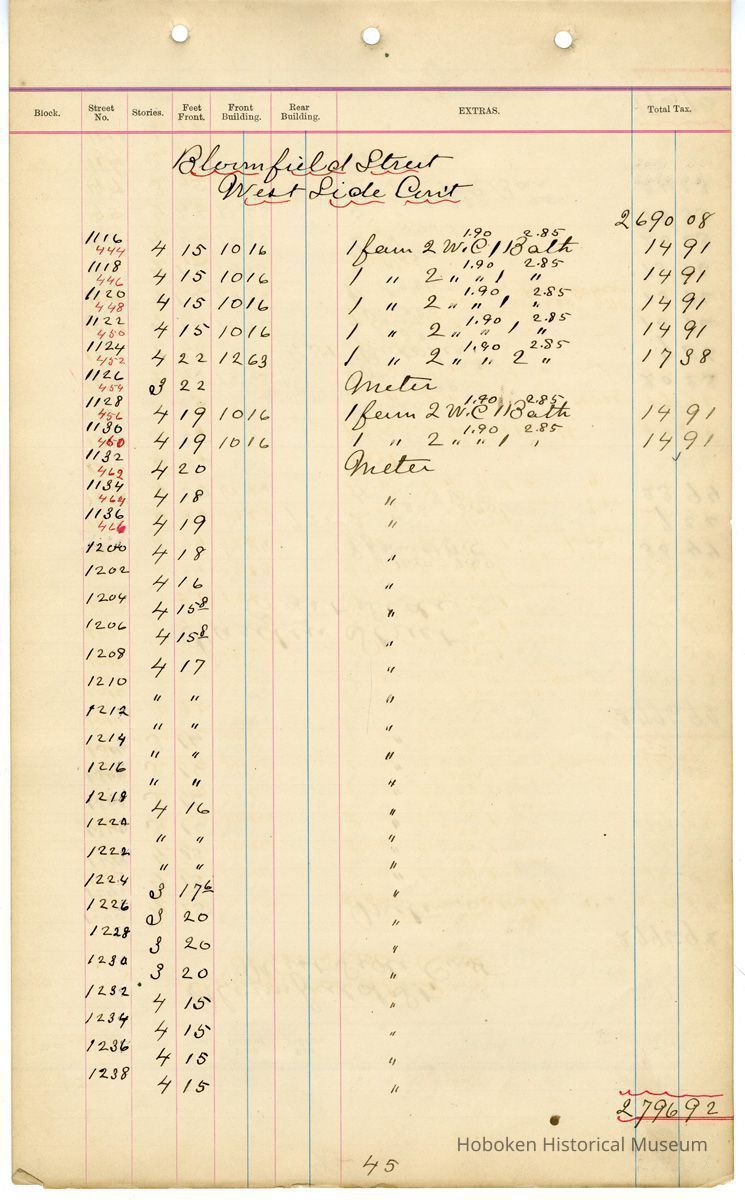 Block. Street No. Stories. Feet Front. Front Building. Rear Building. EXTRAS. Total Tax.
Bloomfield Street
West Side Cont
2690 08
1116 444 4 15 10 16 1 fam 2 W.C 1.90 1 Bath 2.85 14 91
1118 446 4 15 10 16 1 " 2 " " 1.90 1 " 2.85 14 91
1120 448 4 15 10 16 1 " 2 " " 1.90 1 " 2.85 14 91
1122 450 4 15 10 16 1 " 2 " " 1.90 1 " 2.85 14 91
1124 452 4 22 12 63 1 " 2 " " 1.90 2 " 2.85 17 38
1126 454 3 22 Meter
1128 456 4 19 10 16 1 fam 2 W.C 1.90 1 Bath 2.85 14 91
1130 460 4 19 10 16 1 " 2 " " 1.90 1 " 2.85 14 91
1132 462 4 20 Meter
1134 464 4 18 "
1136 466 4 19 "
1200 4 18 "
1202 4 16 "
1204 4 15 8 "
1206 4 15 8 "
1208 4 17 "
1210 " " "
1212 " " "
1214 " " "
1216 " " "
1218 4 16 "
1220 " " "
1222 " " "
1224 3 17 6 "
1226 3 20 "
1228 3 20 "
1230 3 20 "
1232 4 15 "
1234 4 15 "
1236 4 15 "
1238 4 15 "
2796 92
Hoboken Historical Museum
45